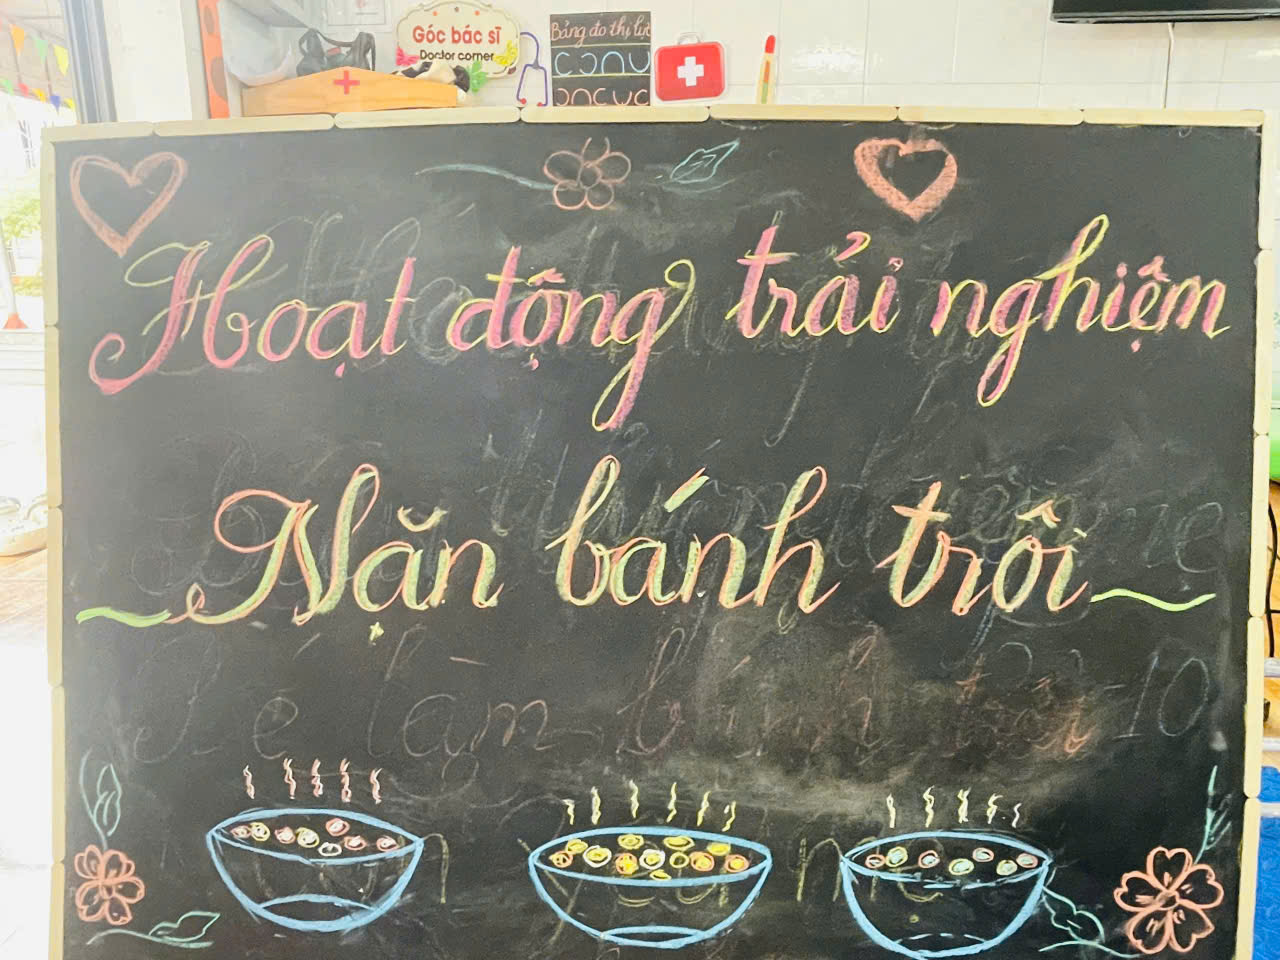 Góc bác sĩ
Doctor corner
Bảng đo thị lực
Hoạt động trải nghiệm
Nặn bánh trôi